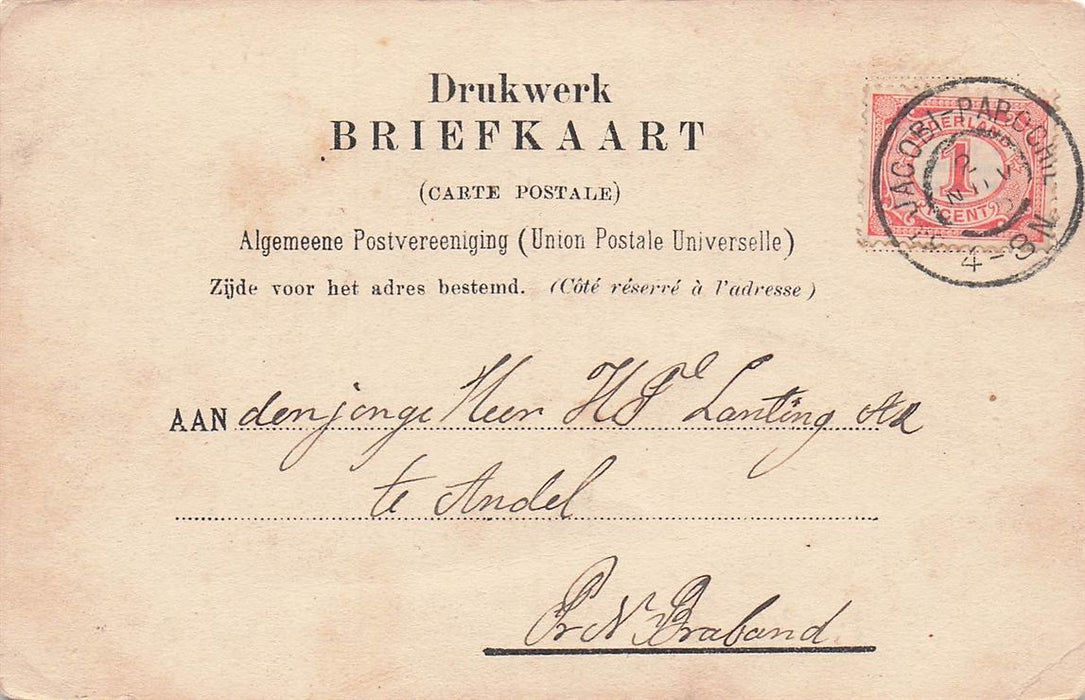 Drukwerk
BRIEFKAART
(CARTE POSTALE)
Algemeene Postvereeniging (Union Postale Universelle)
Zijde voor het adres bestemd. (Côté réservé à l'adresse)
JACOBI-PAROCHIE
4-8N
NEDERLAND
1
CENT
AAN den jonge Heer H Lanting
te Andel
Pr N Braband